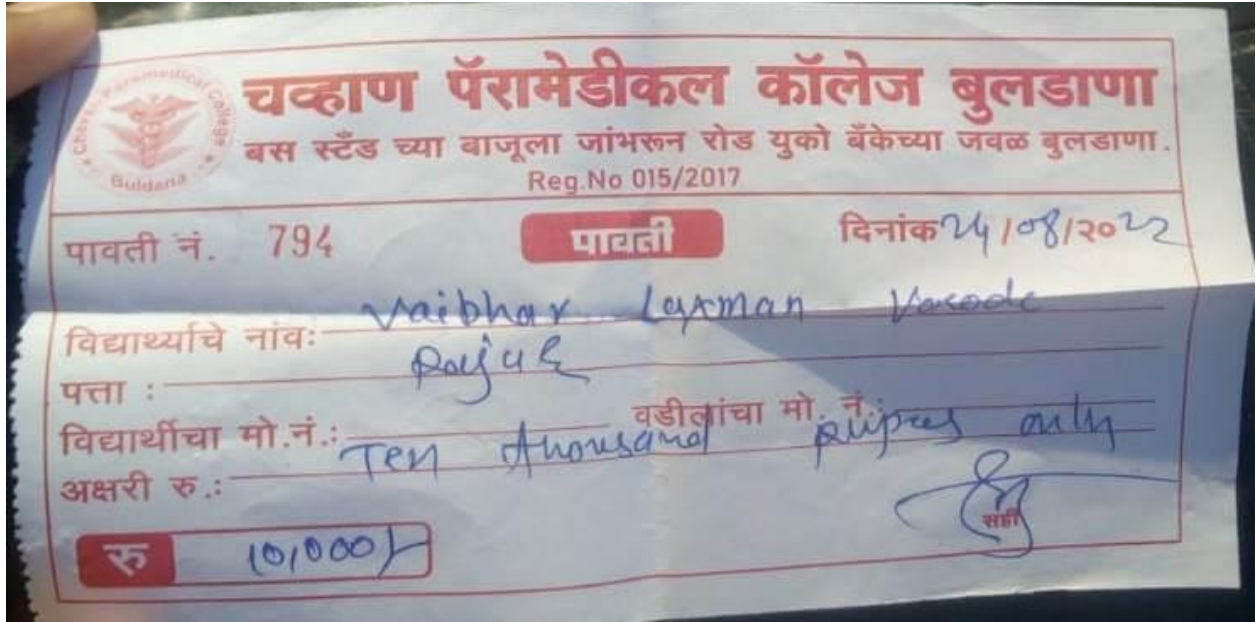 Chavhan Paramedical College
Buldana
चव्हाण पॅरामेडीकल कॉलेज बुलडाणा
बस स्टँड च्या बाजूला जांभरून रोड युको बँकेच्या जवळ बुलडाणा.
Reg.No 015/2017
पावती नं. 794 पावती दिनांक 24/08/२०22
विद्यार्थ्याचे नांवः Vaibhav Laxman
पत्ता :
विद्यार्थीचा मो.नं.: वडीलांचा मो. नं.:
अक्षरी रु.: Ten thousand Rupees only
सही
रु 10,000/-